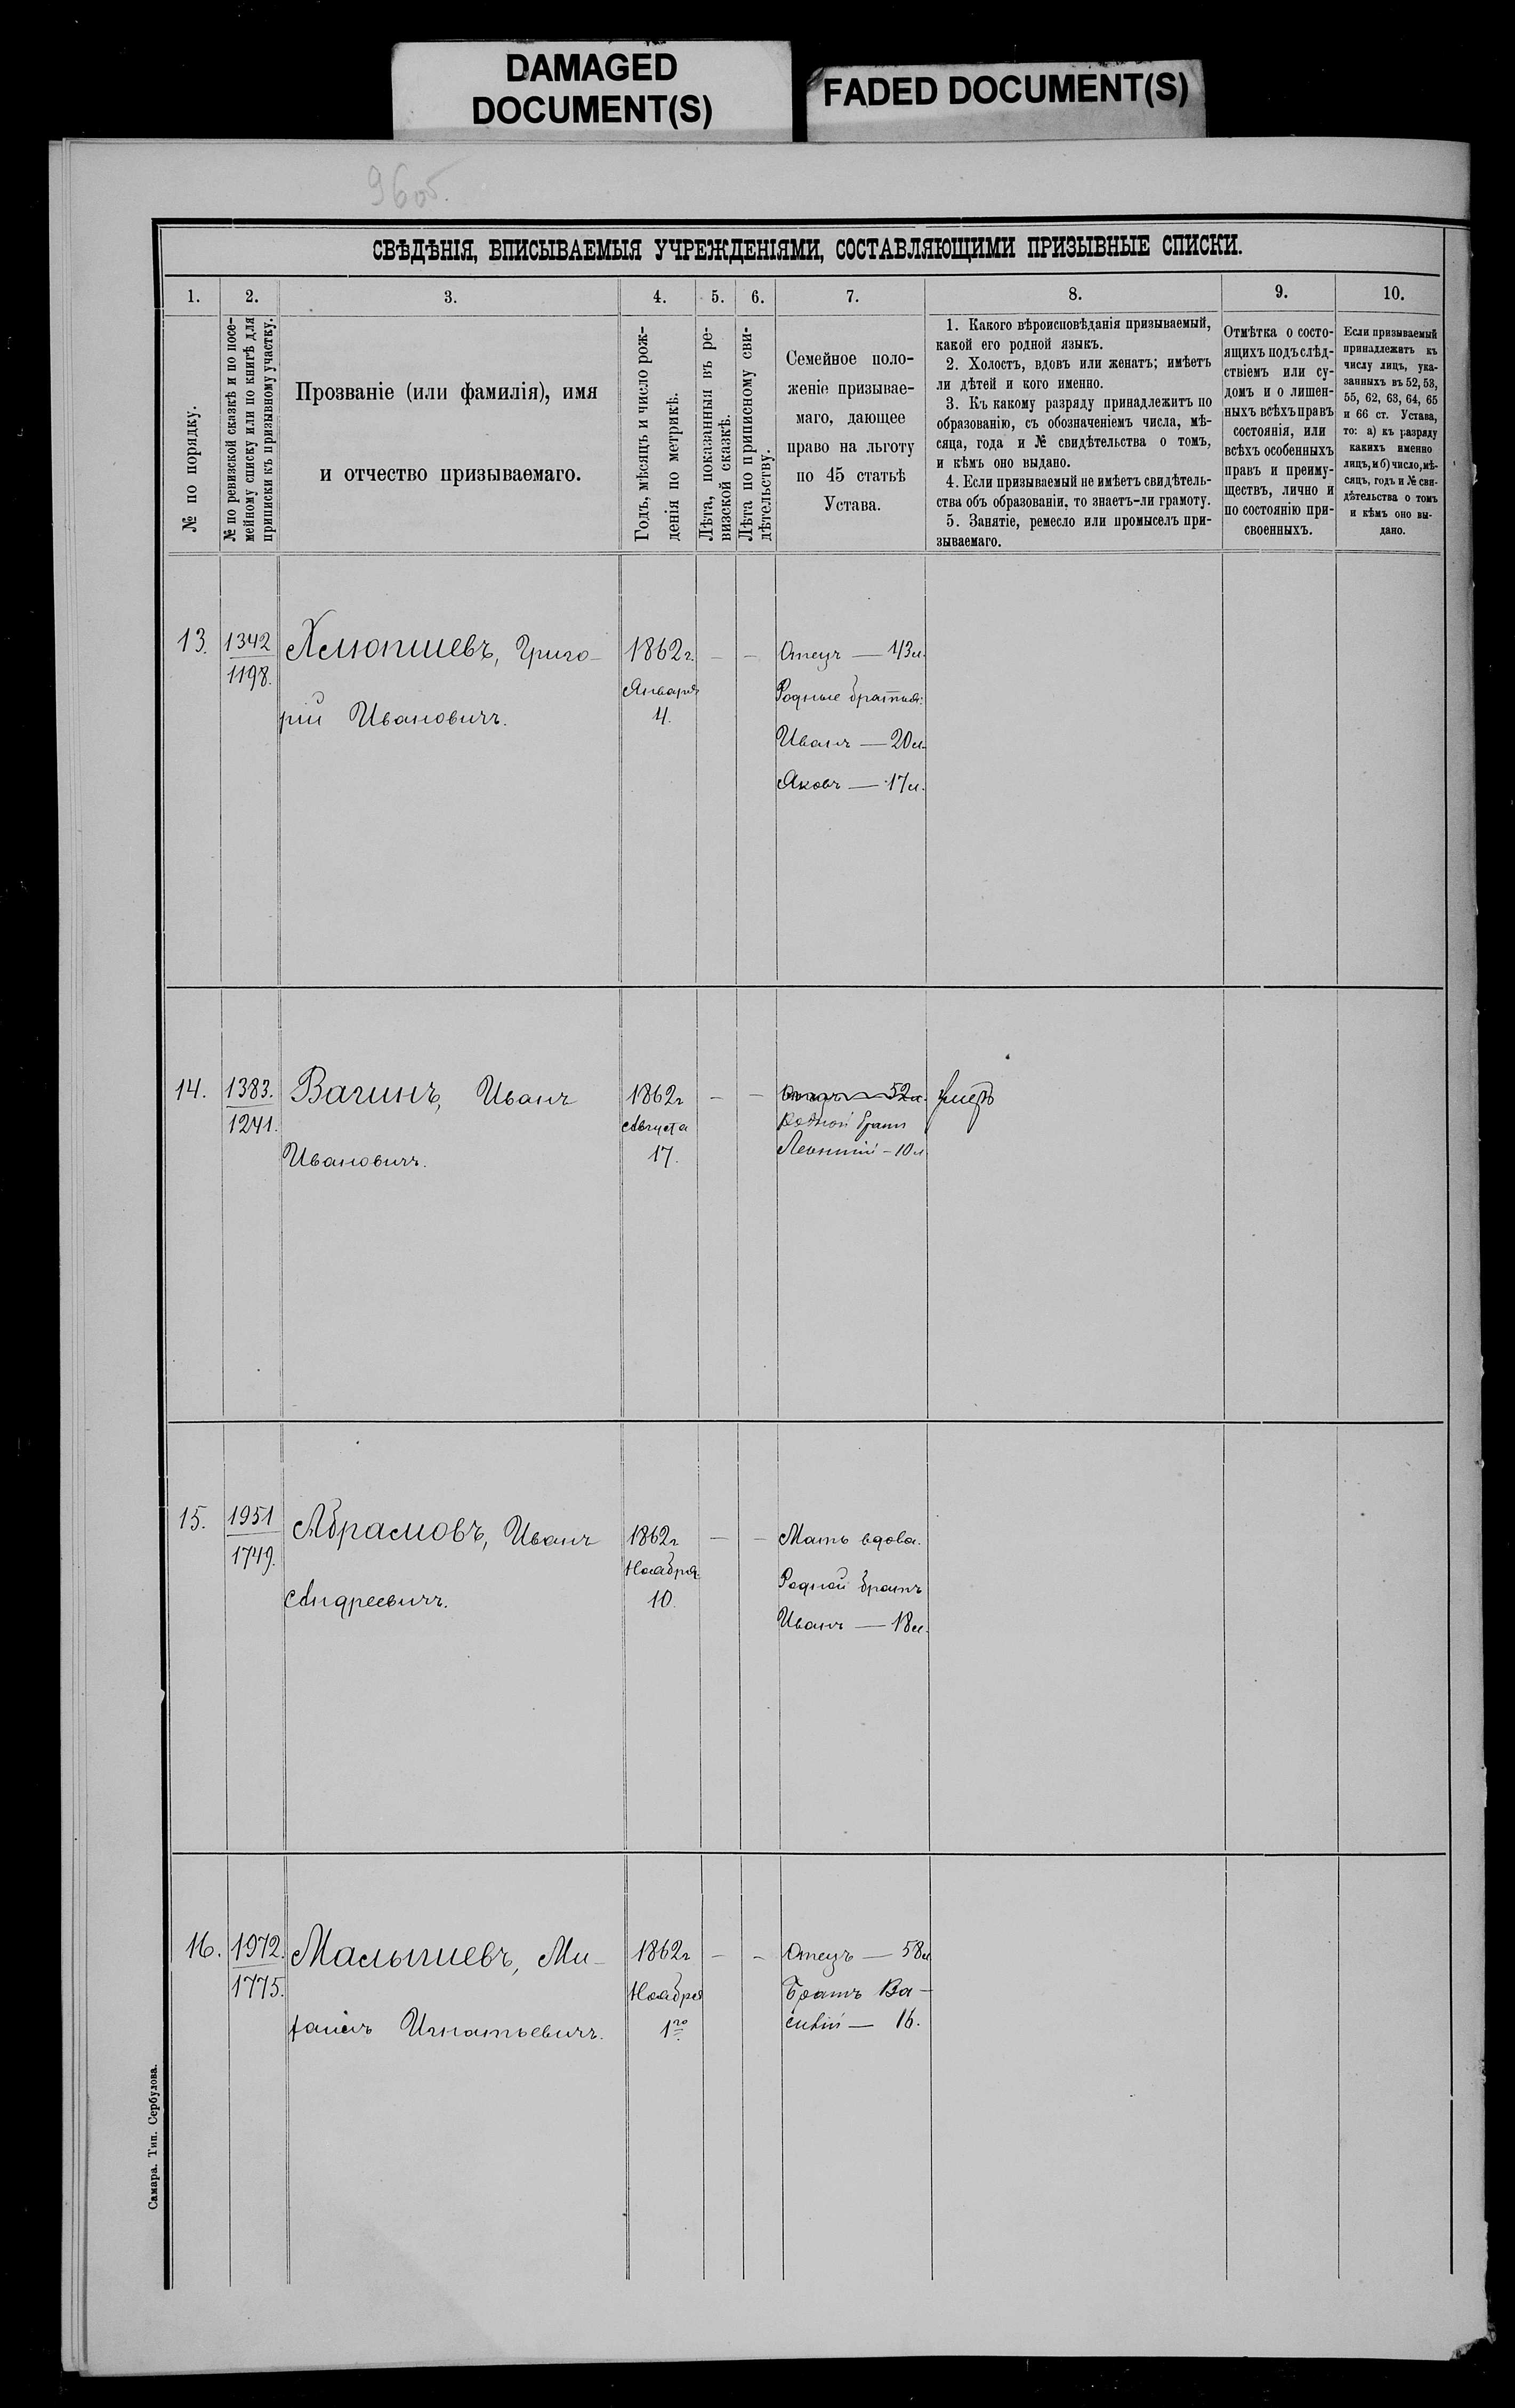 DAMAGED
DOCUMENT(S)
FADED DOCUMENT(S)
96об.
СВѢДѢНІЯ, ВПИСЫВАЕМЫЯ УЧРЕЖДЕНІЯМИ, СОСТАВЛЯЮЩИМИ ПРИЗЫВНЫЕ СПИСКИ.
1. 2. 3. 4. 5. 6. 7. 8. 9. 10.
№ по порядку.
№ по ревизской сказкѣ и по посе-
мейному списку или по книгѣ для
приписки къ призывному участку.
Прозваніе (или фамилія), имя
и отчество призываемаго.
Годъ, мѣсяцъ и число рож-
денія по метрикѣ.
Лѣта, показанныя въ ре-
визской сказкѣ.
Лѣта по приписному сви-
дѣтельству.
Семейное поло-
женіе призывае-
маго, дающее
право на льготу
по 45 статьѣ
Устава.
1. Какого вѣроисповѣданія призываемый,
какой его родной языкъ.
2. Холостъ, вдовъ или женатъ; имѣетъ
ли дѣтей и кого именно.
3. Къ какому разряду принадлежитъ по
образованію, съ обозначеніемъ числа, мѣ-
сяца, года и № свидѣтельства о томъ,
и кѣмъ оно выдано.
4. Если призываемый не имѣетъ свидѣтель-
ства объ образованіи, то знаетъ-ли грамоту.
5. Занятіе, ремесло или промыселъ при-
зываемаго.
Отмѣтка о состо-
ящихъ подъ слѣд-
ствіемъ или су-
домъ и о лишен-
ныхъ всѣхъ правъ
состоянія, или
всѣхъ особенныхъ
правъ и преиму-
ществъ, лично и
по состоянію при-
своенныхъ.
Если призываемый
принадлежитъ къ
числу лицъ, ука-
занныхъ въ 52, 53,
55, 62, 63, 64, 65
и 66 ст. Устава,
то: а) къ разряду
какихъ именно
лицъ, и б) число, мѣ-
сяцъ, годъ и № сви-
дѣтельства о томъ
и кѣмъ оно вы-
дано.
13. 1342 Хлопшевъ, Григо- 1862 г. — — Отецъ — 43 л.
1198. Января Родные братья:
рій Ивановичъ. 4.
Иванъ — 20 л.
Яковъ — 17 л.
14. 1383. Вагинъ, Иванъ 1862 г — — Отецъ — 52 л. умеръ
1241. Августа Родной братъ
Ивановичъ. 17. Леонтій - 10 л
15. 1951 Абрамовъ, Иванъ 1862 г — — Мать вдова.
1749. Ноября Родной братъ
Андреевичъ. 10.
Иванъ — 18 л.
16. 1972. Малышевъ, Ми- 1862 г — — Отецъ — 58 л
1775. Ноября Братъ Ва-
хаилъ Игнатьевичъ. 1го силій — 16.
Самара. Тип. Сербулова.